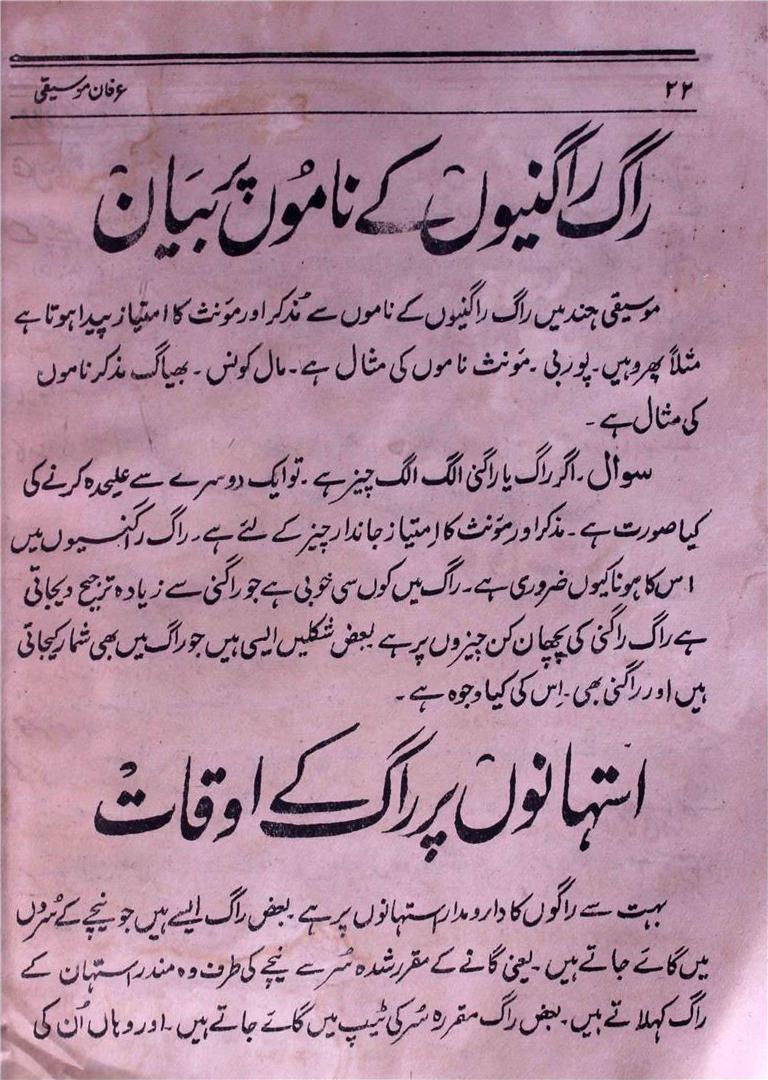 ۲۲
عرفان موسیقی
راگ راگنیوں کے ناموں پر بیان
موسیقی ہند میں راگ راگنیوں کے ناموں سے مذکر اور مونث کا امتیاز پیدا ہوتا ہے
مثلاً پھر وہیں۔ پوربی۔ مونث ناموں کی مثال ہے۔ مال کونس۔ بھیاگ مذکر ناموں
کی مثال ہے۔
سوال۔ اگر راگ یا راگنی الگ الگ چیز ہے۔ تو ایک دوسرے سے علیحدہ کرنے کی
کیا صورت ہے۔ مذکر اور مونث کا اِمتیاز جاندار چیز کے لئے ہے۔ راگ راگنیوں میں
اس کا ہونا کیوں ضروری ہے۔ راگ میں کوں سی خوبی ہے جو راگنی سے زیادہ ترجیح دیجاتی
ہے راگ راگنی کی پہچان کن چیزوں پر ہے بعض شکلیں ایسی ہیں جو راگ میں بھی شمار کیجاتی
ہیں اور راگنی بھی۔ اِس کی کیا وجوہ ہے۔
استہانوں پر راگ کے اوقات
بہت سے راگوں کا دارومدار استہانوں پر ہے بعض راگ ایسے ہیں جو نیچے کے سُروں
میں گائے جاتے ہیں۔ یعنی گانے کے مقرر شدہ سُر سے نیچے کی طرف وہ مندر استہان کے
راگ کہلاتے ہیں۔ بعض راگ مقررہ سُر کی ٹیپ میں گائے جاتے ہیں۔ اور وہاں اُن کی